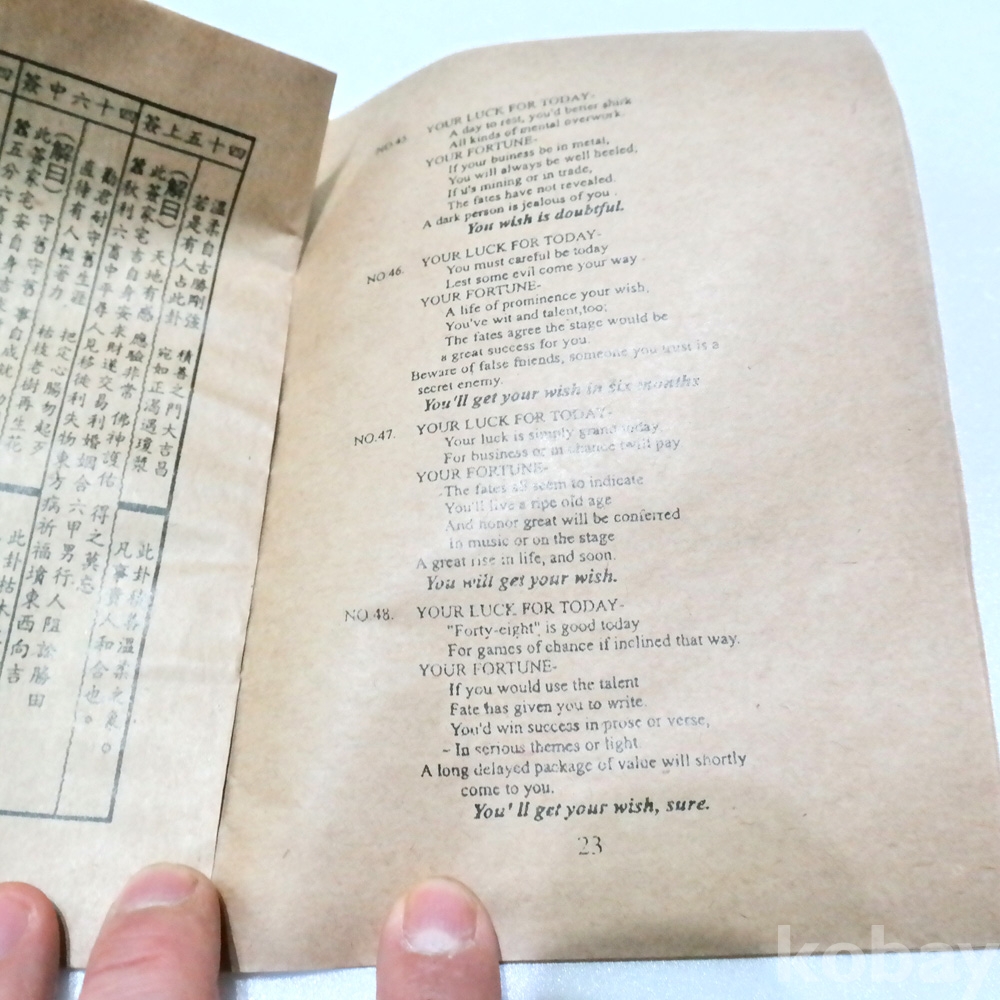 簽上五十四
溫柔自古勝剛強 積善之門大吉昌
若是有人占此卦 宛如正渴遇瓊漿
此卦積善溫柔之象。
凡事貴人和合也。
(解曰) 天地有感 應驗非常 佛神護佑 得之莫忘
此簽家宅吉自身安求財遂交易利婚姻合六甲男行人阻訟勝田
蠶秋利六畜中平尋人見移徙利失物東方病祈福墳東西向吉
簽中六十四
勸君耐守舊生涯 把定心腸勿起歹
直待有人輕著力 枯枝老樹再生花
此卦枯木
(解曰) 守舊守舊 事自成就
此簽家宅安自身吉
蠶五分六畜
四
NO.45 YOUR LUCK FOR TODAY-
A day to rest, you'd better shirk
All kinds of mental overwork.
YOUR FORTUNE-
If your buiness be in metal,
You will always be well heeled,
If it's mining or in trade,
The fates have not revealed.
A dark person is jealous of you .
You wish is doubtful.
NO.46. YOUR LUCK FOR TODAY-
You must careful be today
Lest some evil come your way .
YOUR FORTUNE-
A life of prominence your wish,
You've wit and talent,too;
The fates agree the stage would be
a great success for you.
Beware of false friends, someone you trust is a
secret enemy.
You'll get your wish in six months
NO.47. YOUR LUCK FOR TODAY-
Your luck is simply grand today
For business or in chance twill pay
YOUR FORTUNE-
The fates all seem to indicate
You'll live a ripe old age
And honor great will be conferred
In music or on the stage
A great rise in life, and soon.
You will get your wish.
NO.48. YOUR LUCK FOR TODAY-
"Forty-eight" is good today
For games of chance if inclined that way.
YOUR FORTUNE-
If you would use the talent
Fate has given you to write.
You'd win success in prose or verse,
- In serious themes or light.
A long delayed package of value will shortly
come to you.
You' ll get your wish, sure.
23
kobay